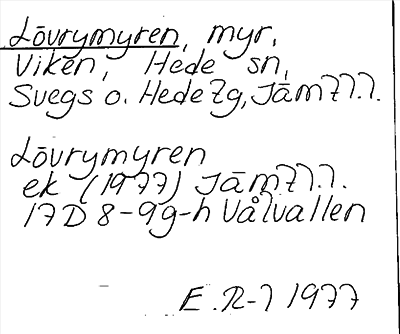 Lōvrymyren, myr,
Viken, Hede sn,
Svegs o. Hede tg, Jämtl.
Lōvrymyren
ek (1977) Jämtl.
17D 8-9g-h Vålvallen
E. R-7 1977